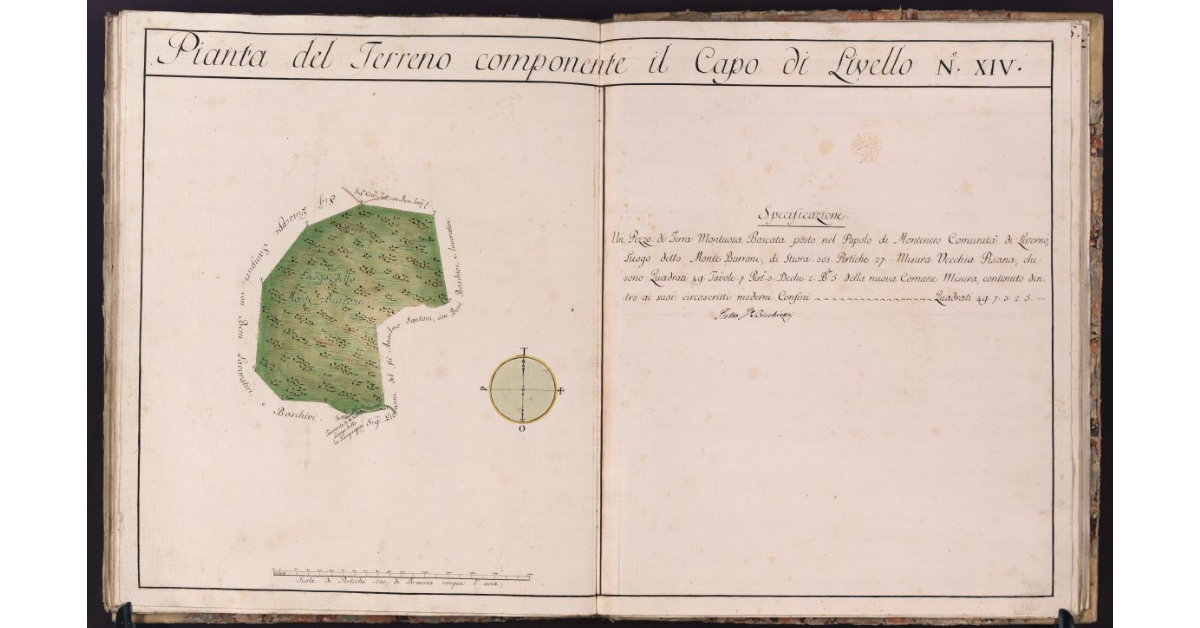 Pianta del Terreno componente il Capo di Livello N.º XIV.
5.
Sig.
Giuseppe
Sanguineti, con Beni Lavorativi,
e Boschivi.
Luogo detto
Monte Burrone
Santoni, con Beni Boschivi, e lavorativi
Sig.
T
P
O
Scala di Pertiche 120, di Braccia cinque l'una.
Specificazione
Un Pezzo di Terra Montuosa Boscata posto nel Popolo di Montenero Comunità di Livorno,
Luogo detto Monte Burrone, di Stiora 201 Pertiche 27 Misura Vecchia Pisana, che
sono Quadrati 49 Tavole 7 Pert.e 3 Deche 2 B.a 5 della nuova Comune Misura, contenuto den-
tro ai suoi circoscritti moderni Confini Quadrati 49. 7. 3. 2. 5. —